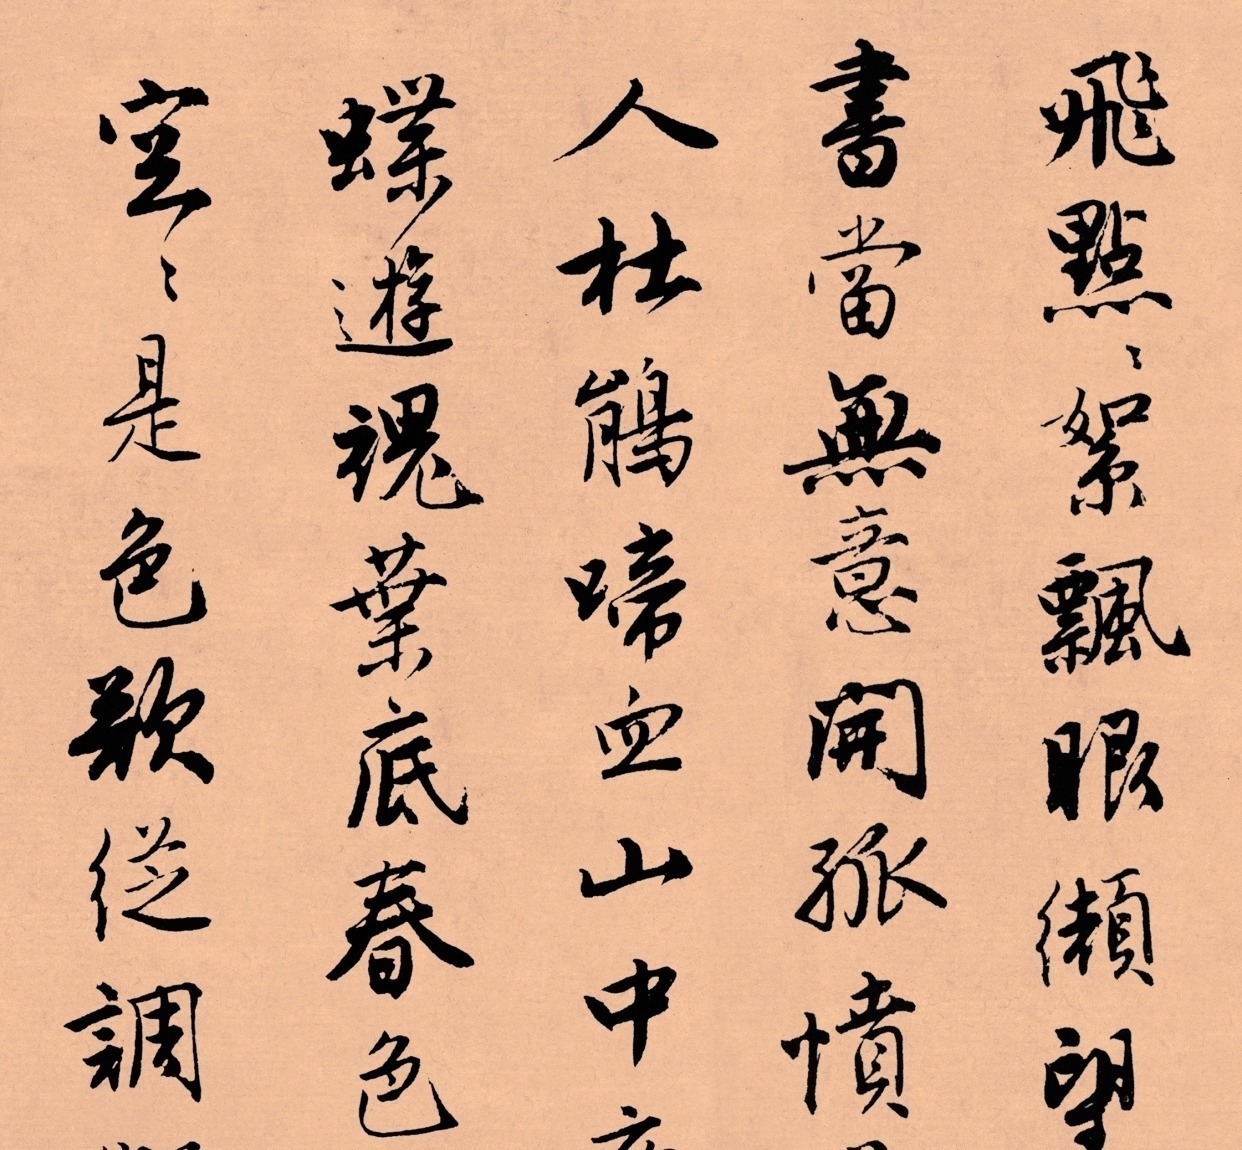 飛點〻絮飄眼懶望
書當無意開孤憤
人杜鵑啼血山中
蝶遊魂葉底春色
空〻是色歌從調